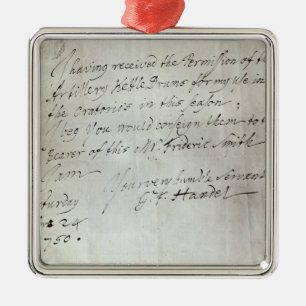 I having received the Permission of the
Artillery Kettle Drums for my use in
the Oratorio's in this season;
I beg You would consign them to t
Bearer of this Mr. Frideric Smith
I am
Your very humble servant
G. F. Handel
turday
24
750.